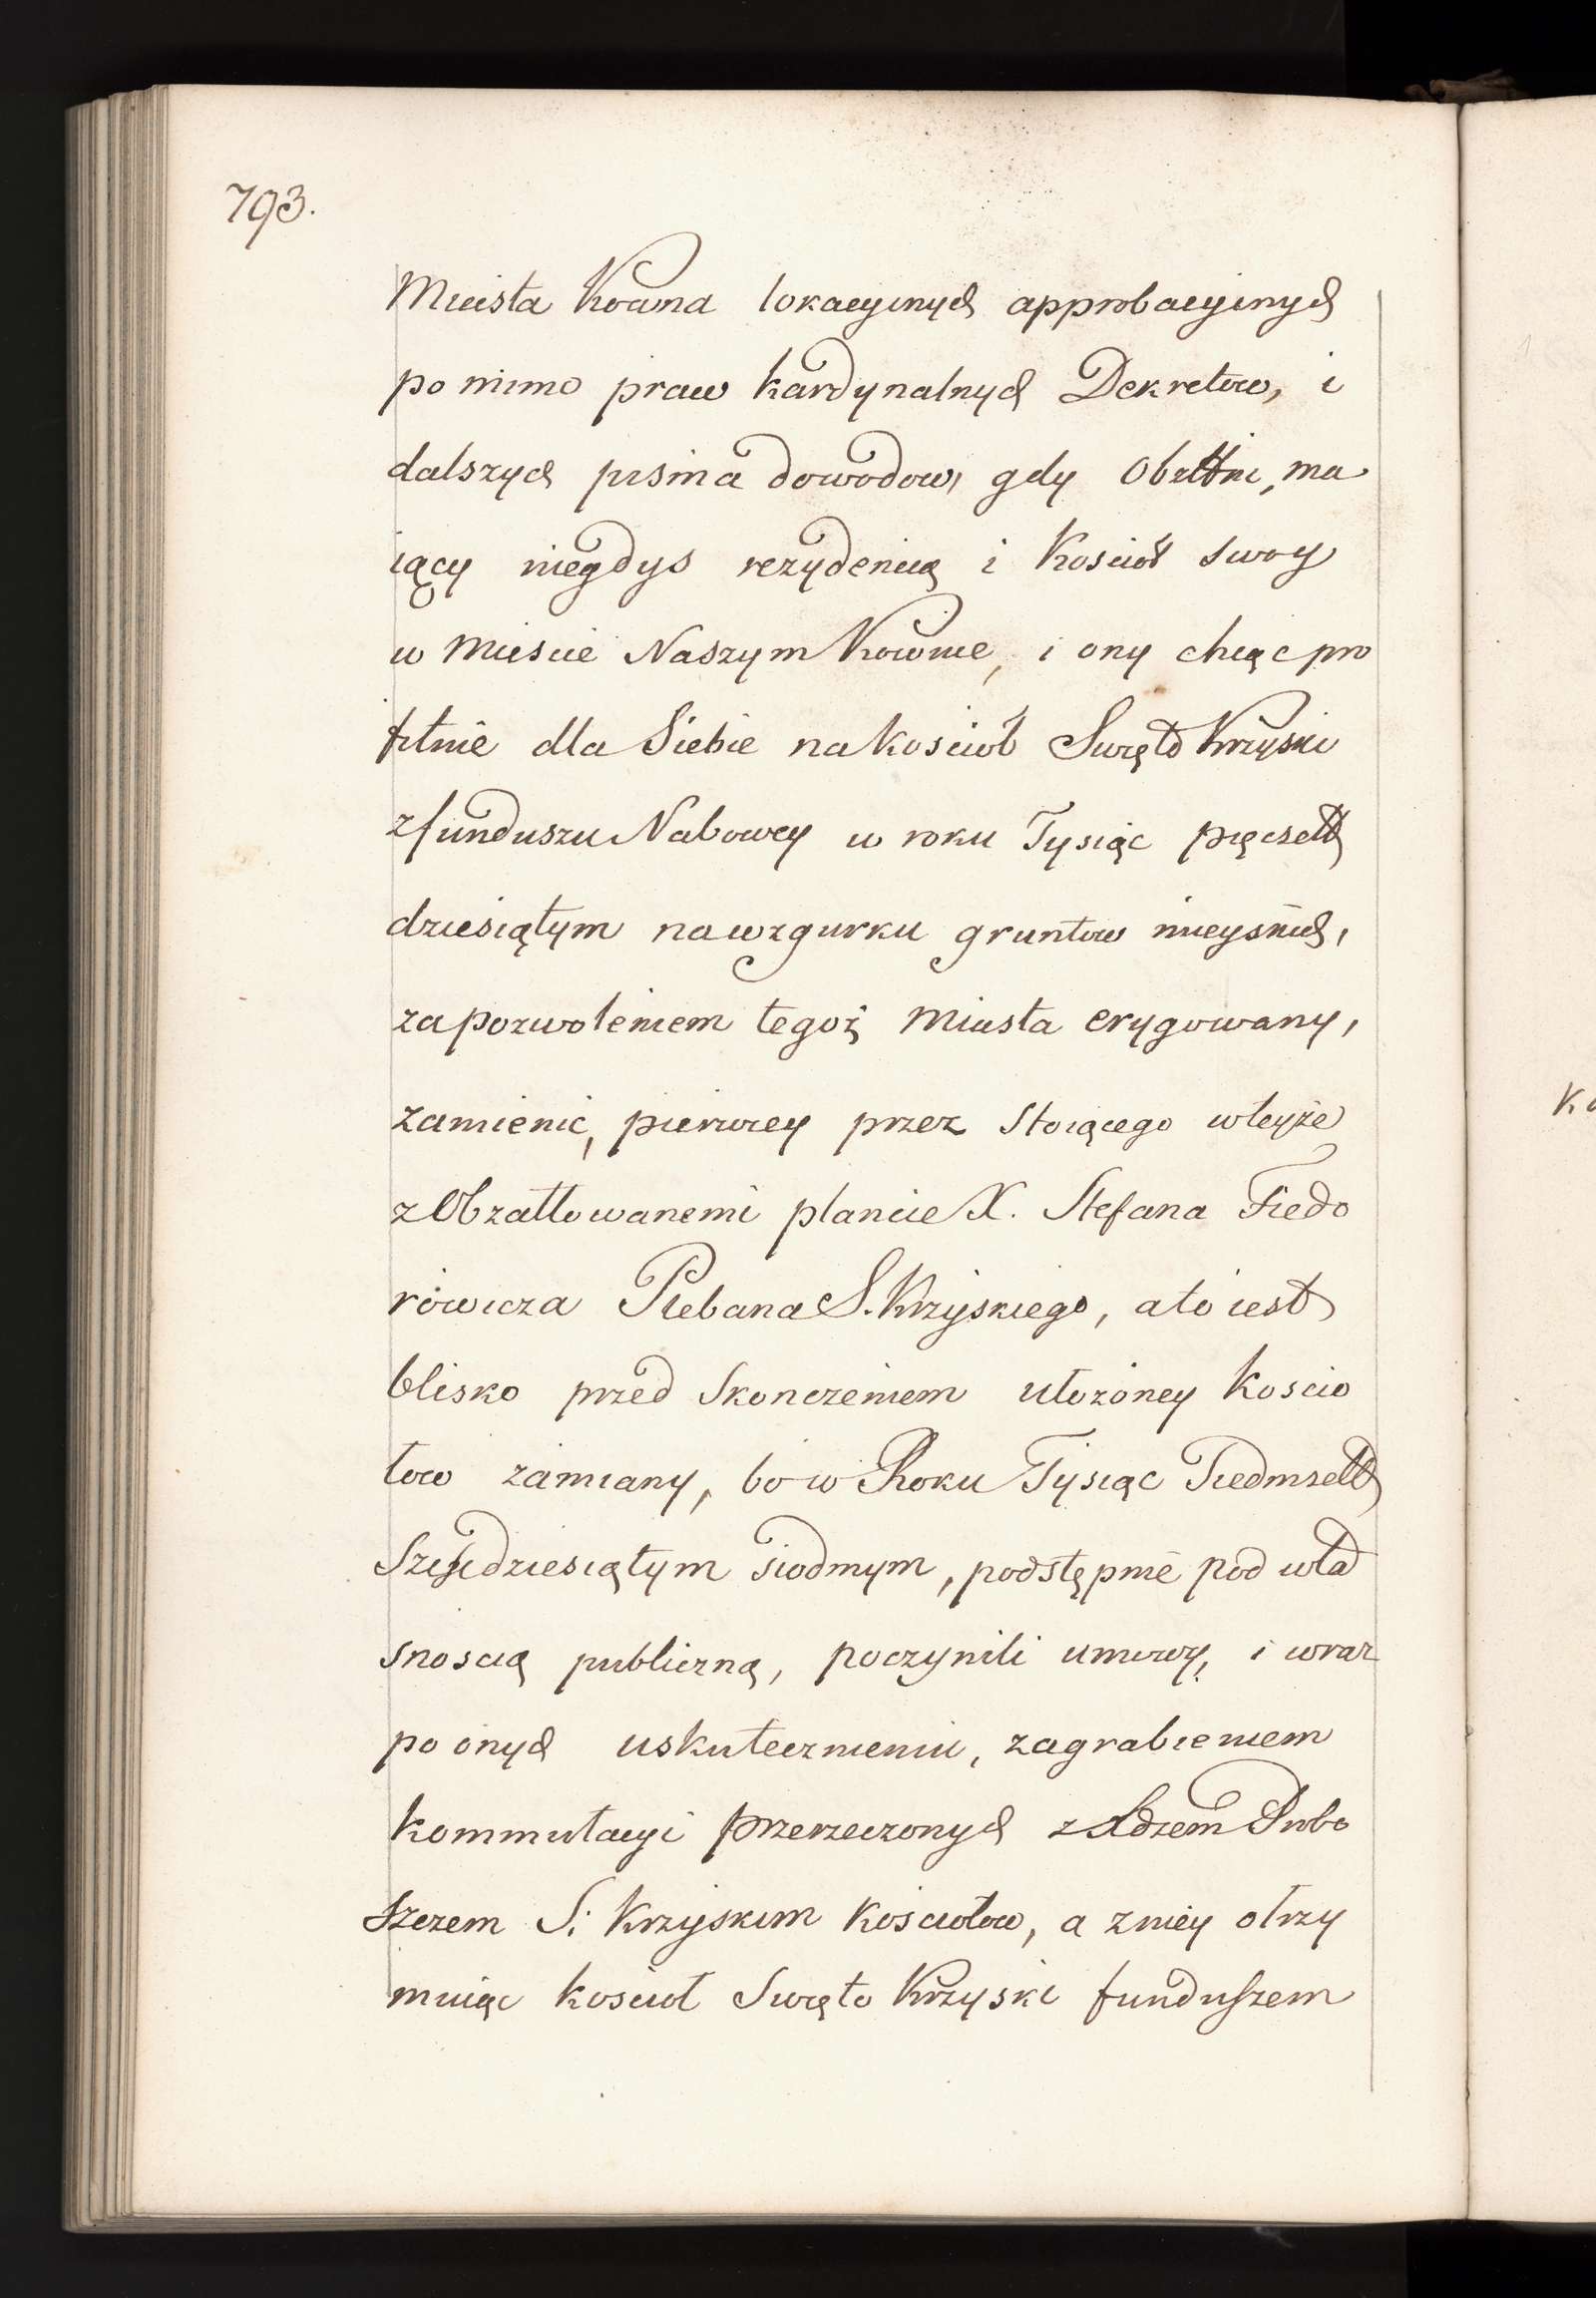 793.
Miasta Kowna lokacyinych approbacyinych
po mimo praw kardynalnych Dekretow, i
dalszych pisma dowodow, gdy Obżttni, ma
iący niegdys rezydencią i Kosciół swoy
w Miescie Naszym Kownie, i ony chcąc pro
fitnie dla Siebie na Kosciół Swięto Krzyski
z funduszu Nabowey w roku Tysiąc pięcsett
dziesiątym na wzgurku gruntow mieyskich,
za pozwoleniem tegoż Miasta erygowany,
zamienic, pierwey przez stoiącego w teyże
z Obżattowanemi plancie X. Stefana Fiedo
rowicza Plebana S. Krzyskiego, a to iest
blisko przed skonczeniem ułożoney koscio
łow zamiany, bo w Roku Tysiąc Siedmsett
Szescdziesiątym siodmym, podstępnie pod wła
snoscią publiczną, poczynili umowy, i wraz
po onych uskutecznieniu, zagrabieniem
kommutacyi przerzeczonych z Xdzem Probo
szczem S. Krzyskim Kosciołow, a z niey otrzy
maiąc kosciol Swięto Krzyski funduszem
Ko